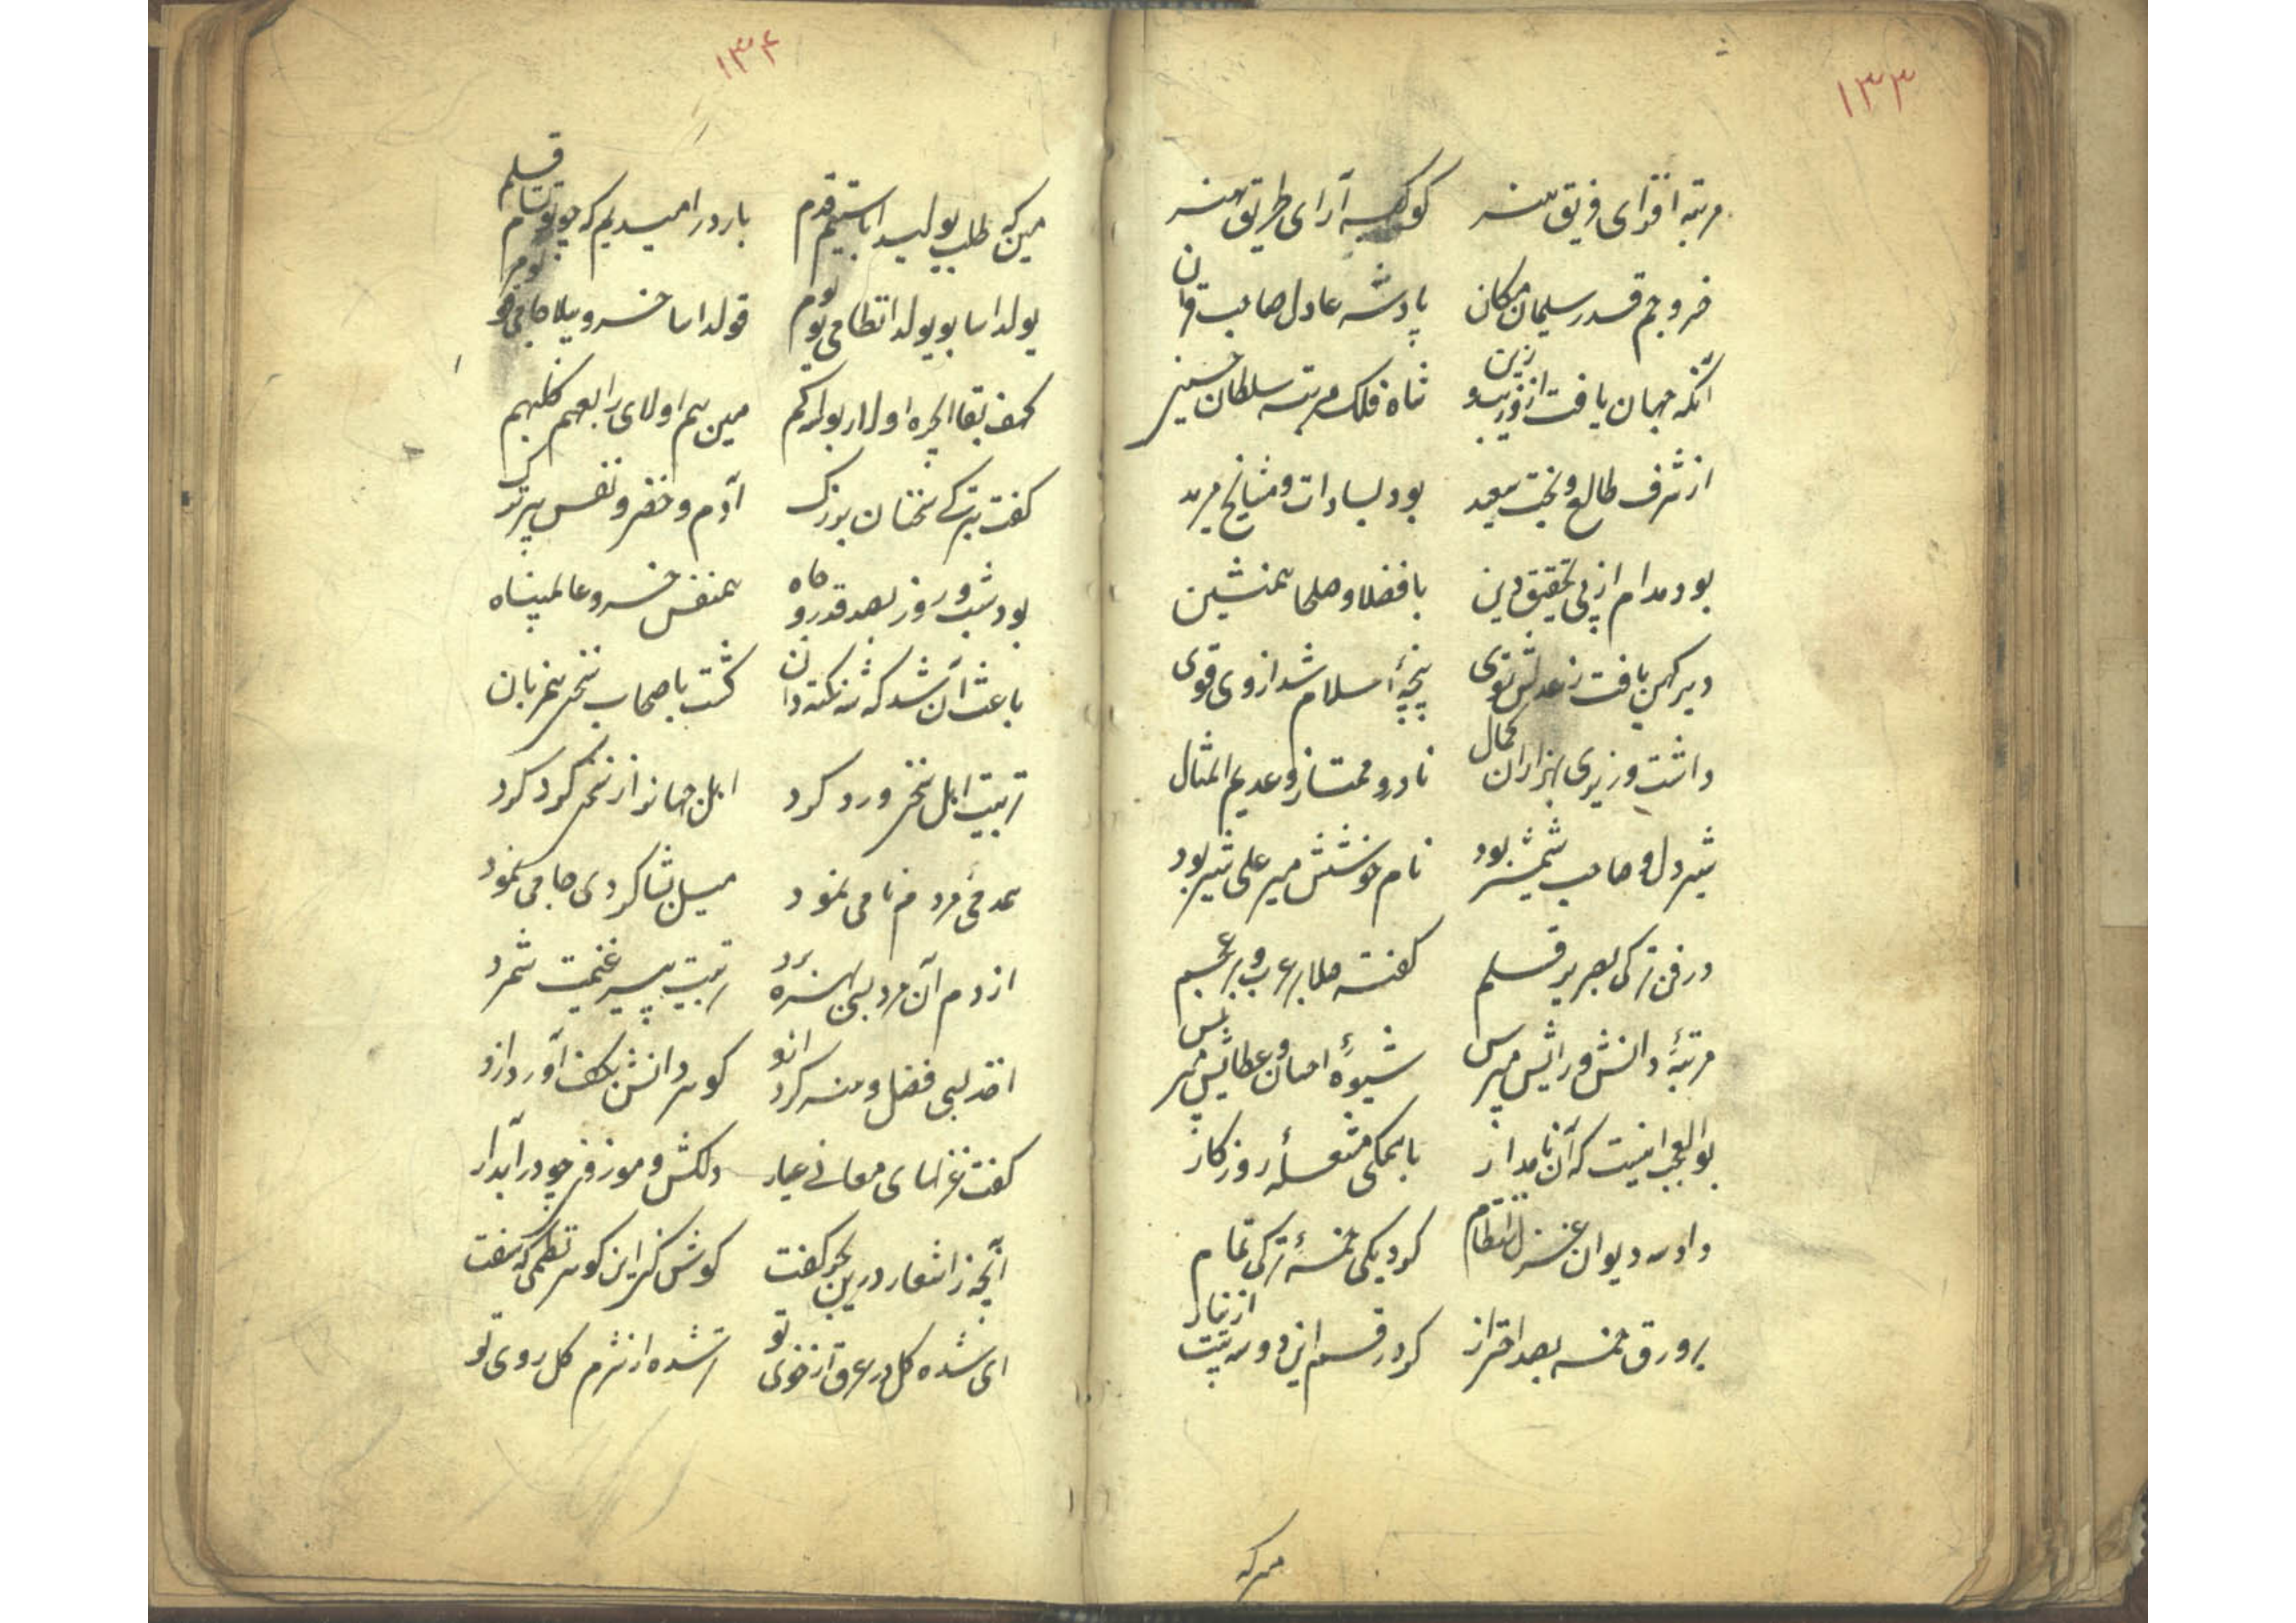 ۱۳۳
مرتبه افزای فریق هنر کوکبه آرای طریق هنر
خسرو جم قدر سلیمان مکان پادشه عادل صاحب قران
آنکه جهان یافت ازو زیب و زین شاه فلک مرتبه سلطان حسین
از شرف طالع و بخت سعید بود بسادات و مشایخ مرید
بود مدام از پی تحقیق دین با فضلا و صلحا همنشین
دیر کهن یافت ز عدلش نوی پنجهٔ اسلام شد از وی قوی
داشت وزیری بهزاران کمال نادر و ممتاز و عدیم المثال
شیر دل و صاحب شمشیر بود نام خوشش میر علی شیر بود
در فن ترکی بصریر قلم گفته صلا بر عرب و بر عجم
مرتبهٔ دانش و رایش مپرس شیوهٔ احسان و عطایش مپرس
بوالعجب اینست که آن نامدار با همکی مشغلهٔ روزکار
داد سه دیوان غزل انتظام کرد یکی خمسهٔ ترکی تمام
بر ورق خمسه بصد احتراز کرد رقم این دو سه بیت از نیاز
مین که
۱۳۴
مین که طلب یولیدا باستیم قدم بار درامیدیم که چو توتسام قلم
یولداسا بو یولدا نظامی یولوم قولداسا خسرو بیلا جامی قولوم
کهف بقا ایچره اولار بولسه کیم مین هم اولای رابعهم کلبهم
کفت بترکی سخنان بزرک آدم و خضر و نفس پیر ترک
بود شب و روز بصد قدر و جاه همنفس خسرو عالمپناه
باعث آن شد که شه نکته دان کشت باصحاب سخن همزبان
تربیت اهل سخن ورد کرد اهل جهانرا ز سخن کرد کرد
همدمی مردم نامی نمود میل بشاکردی جامی نمود
از دم آن مرد بسی بهره برد تربیت پیر غنیمت شمرد
اخذ بسی فضل و هنر کرد ازو کوهر دانش بکف آورد ازو
کفت غزلهای معانی عیار دلکش و موزون چو در آبدار
آنچه ز اشعار درین بحر کفت کوش کن این کوهر نظمی که سفت
ای شده کل در عرق از خوی تو تر شده از شرم کل روی تو